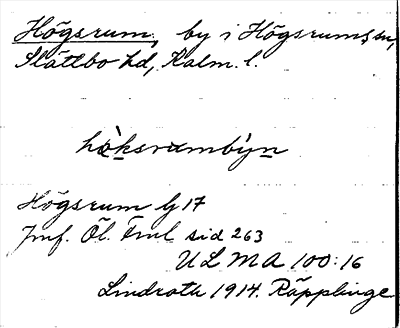 Högsrum, by i Högsrums sn,
Slättbo hd, Kalm. l.
hòksrumbýn
Högsrum G 17
Jmf. Öl. Frnl sid 263
ULMA 100:16
Lindroth 1914. Räpplinge